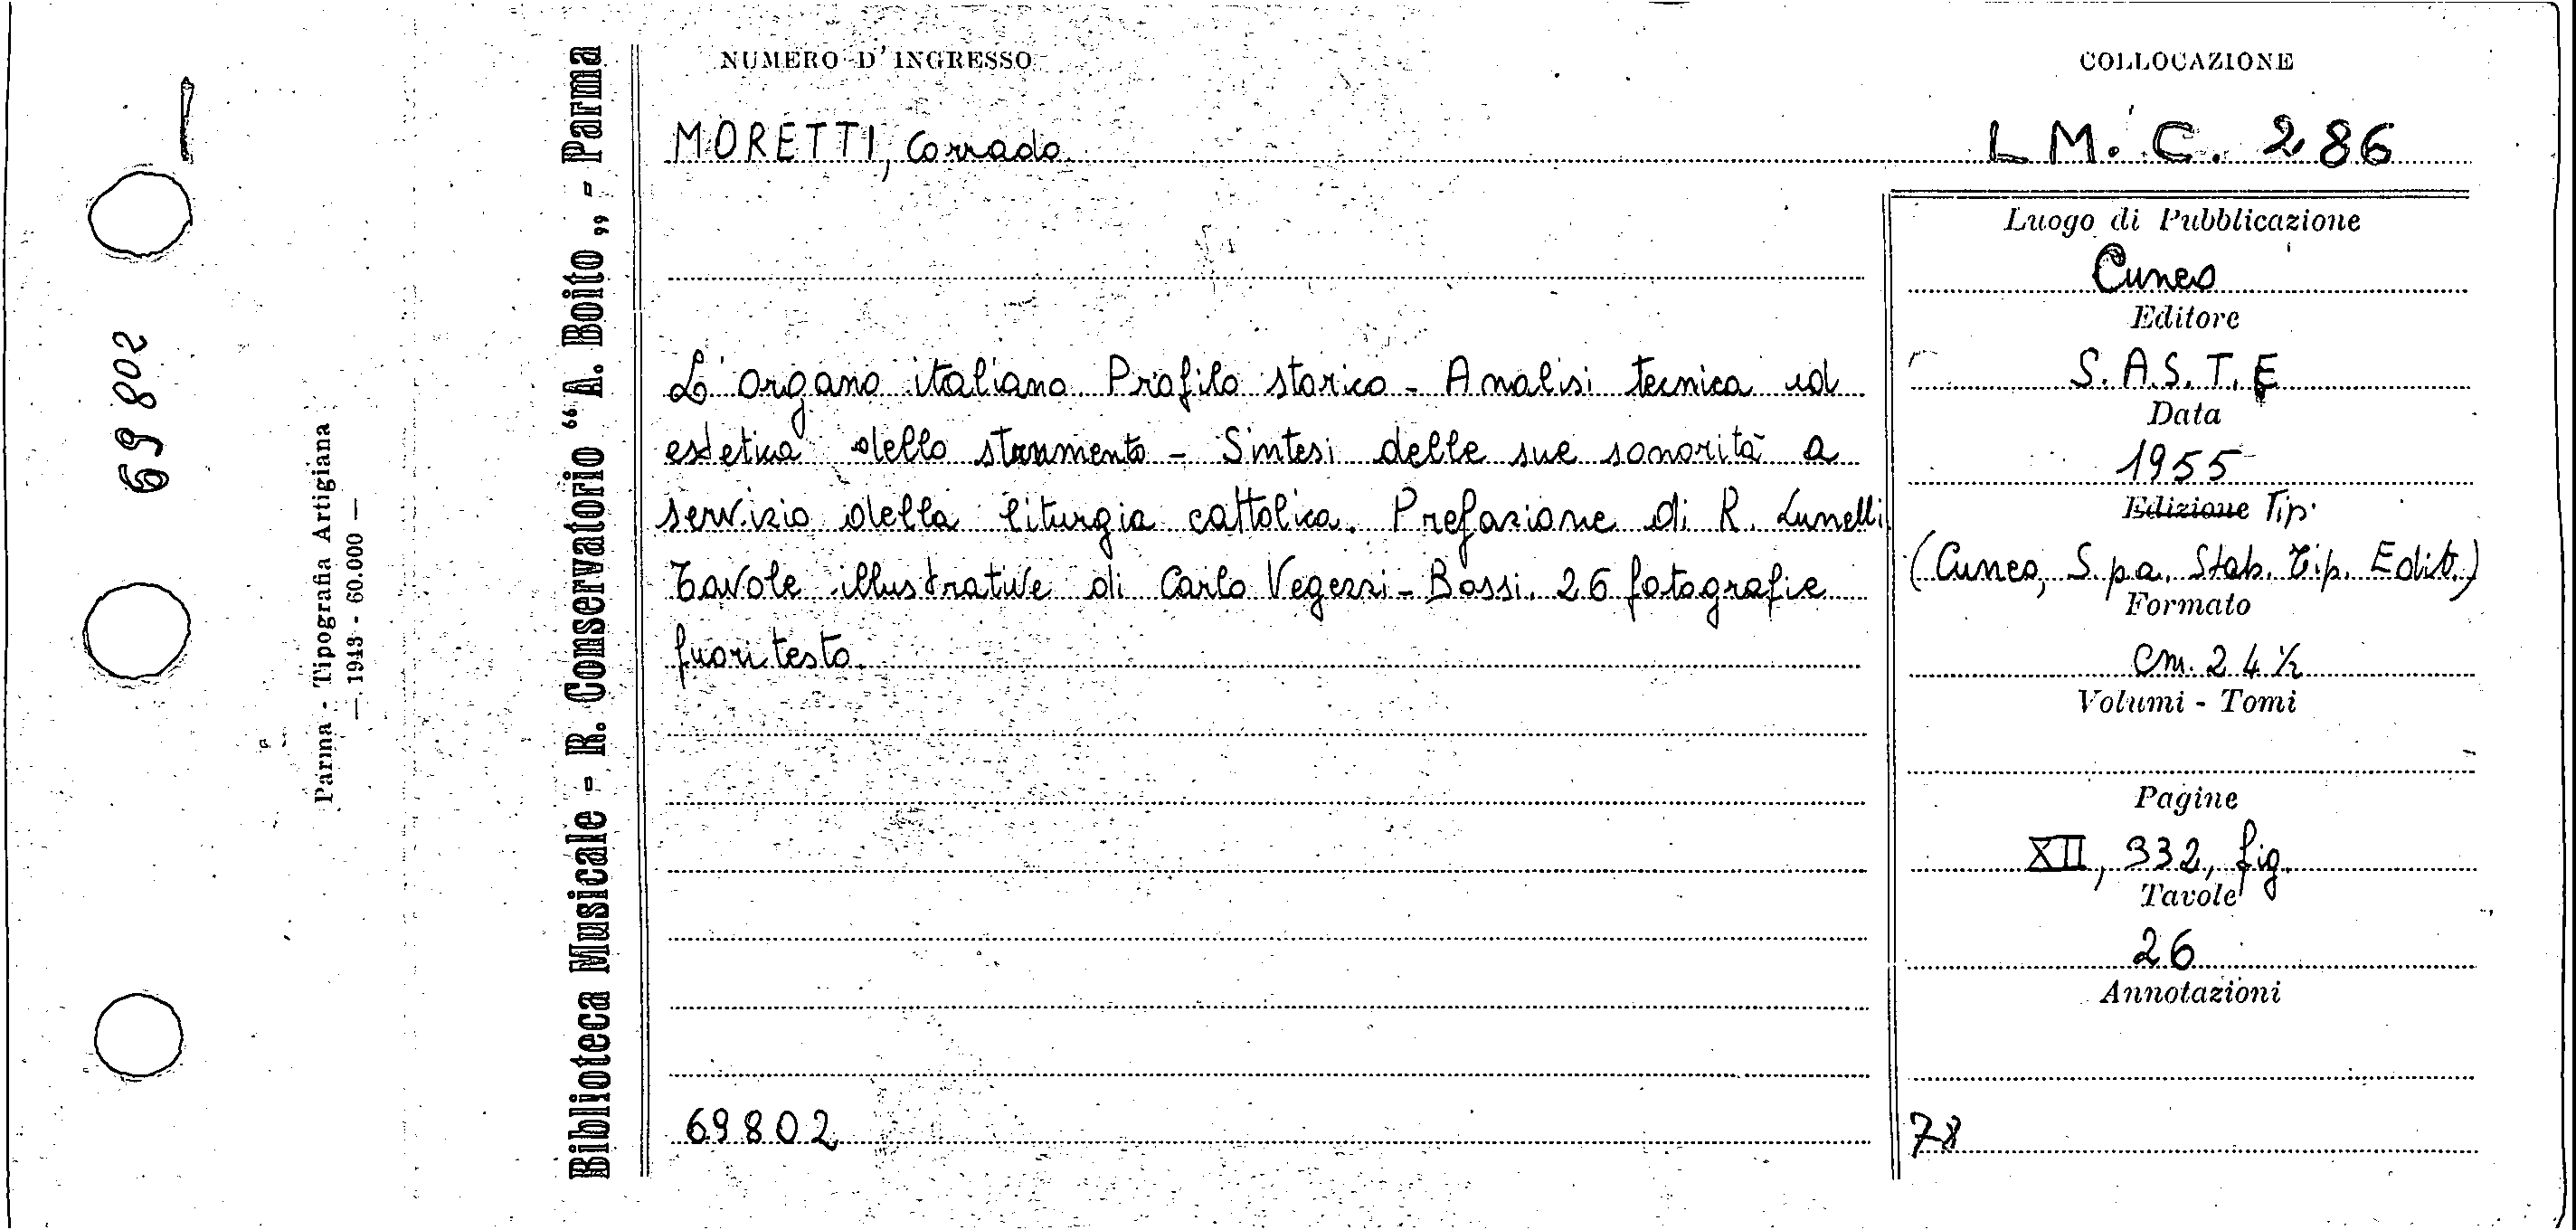 69802
Parma - Tipografia Artigiana
— 1943 - 60.000 —
Biblioteca Musicale - R. Conservatorio “A. Boito„ - Parma
NUMERO D'INGRESSO
MORETTI, Corrado
L'organo italiano. Profilo storico - Analisi tecnica ed
estetica dello strumento - Sintesi delle sue sonorità a
servizio della liturgia cattolica. Prefazione di R. Lunelli
Tavole illustrative di Carlo Vegezzi-Bossi. 26 fotografie
fuori testo.
69802
COLLOCAZIONE
L M. C. 286
Luogo di Pubblicazione
Cuneo
Editore
S.A.S.T.E
Data
1955
Edizione Tip.
(Cuneo, S.p.a. Stab. Tip. Edit.)
Formato
cm. 24 ½
Volumi - Tomi
Pagine
XII, 332, fig.
Tavole
26
Annotazioni
78